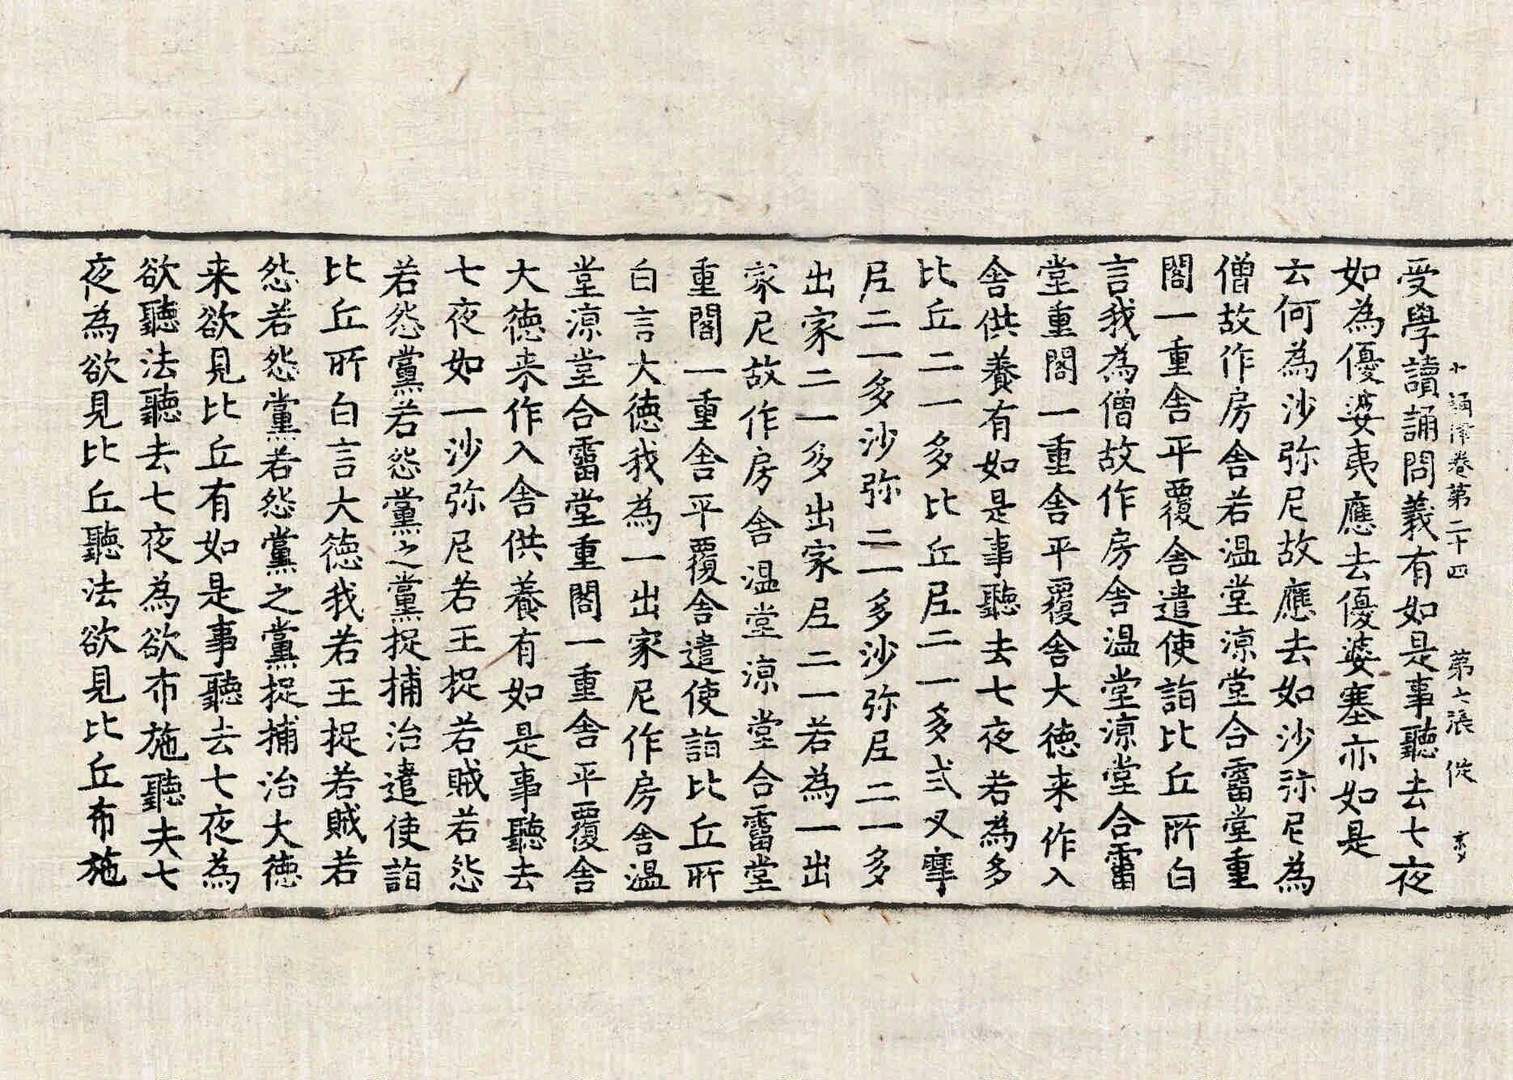 十誦律卷第二十四　第七張　從
受學讀誦問義有如是事聽去七夜
如為優婆夷應去優婆塞亦如是
云何為沙弥尼故應去如沙弥尼為
僧故作房舍若温堂涼堂合霤堂重
閣一重舍平覆舍遣使詣比丘所白
言我為僧故作房舍温堂涼堂合霤
堂重閣一重舍平覆舍大徳来作入
舍供養有如是事聽去七夜若為多
比丘二一多比丘尼二一多式叉摩
尼二一多沙弥二一多沙弥尼二一多
出家二一多出家尼二一若為一出
家尼故作房舍温堂涼堂合霤堂
重閣一重舍平覆舍遣使詣比丘所
白言大徳我為一出家尼作房舍温
堂涼堂合霤堂重閣一重舍平覆舍
大徳来作入舍供養有如是事聽去
七夜如一沙弥尼若王捉若賊若怨
若怨黨若怨黨之黨捉捕治遣使詣
比丘所白言大徳我若王捉若賊若
怨若怨黨若怨黨之黨捉捕治大徳
来欲見比丘有如是事聽去七夜為
欲聽法聽去七夜為欲布施聽去七
夜為欲見比丘聽法欲見比丘布施